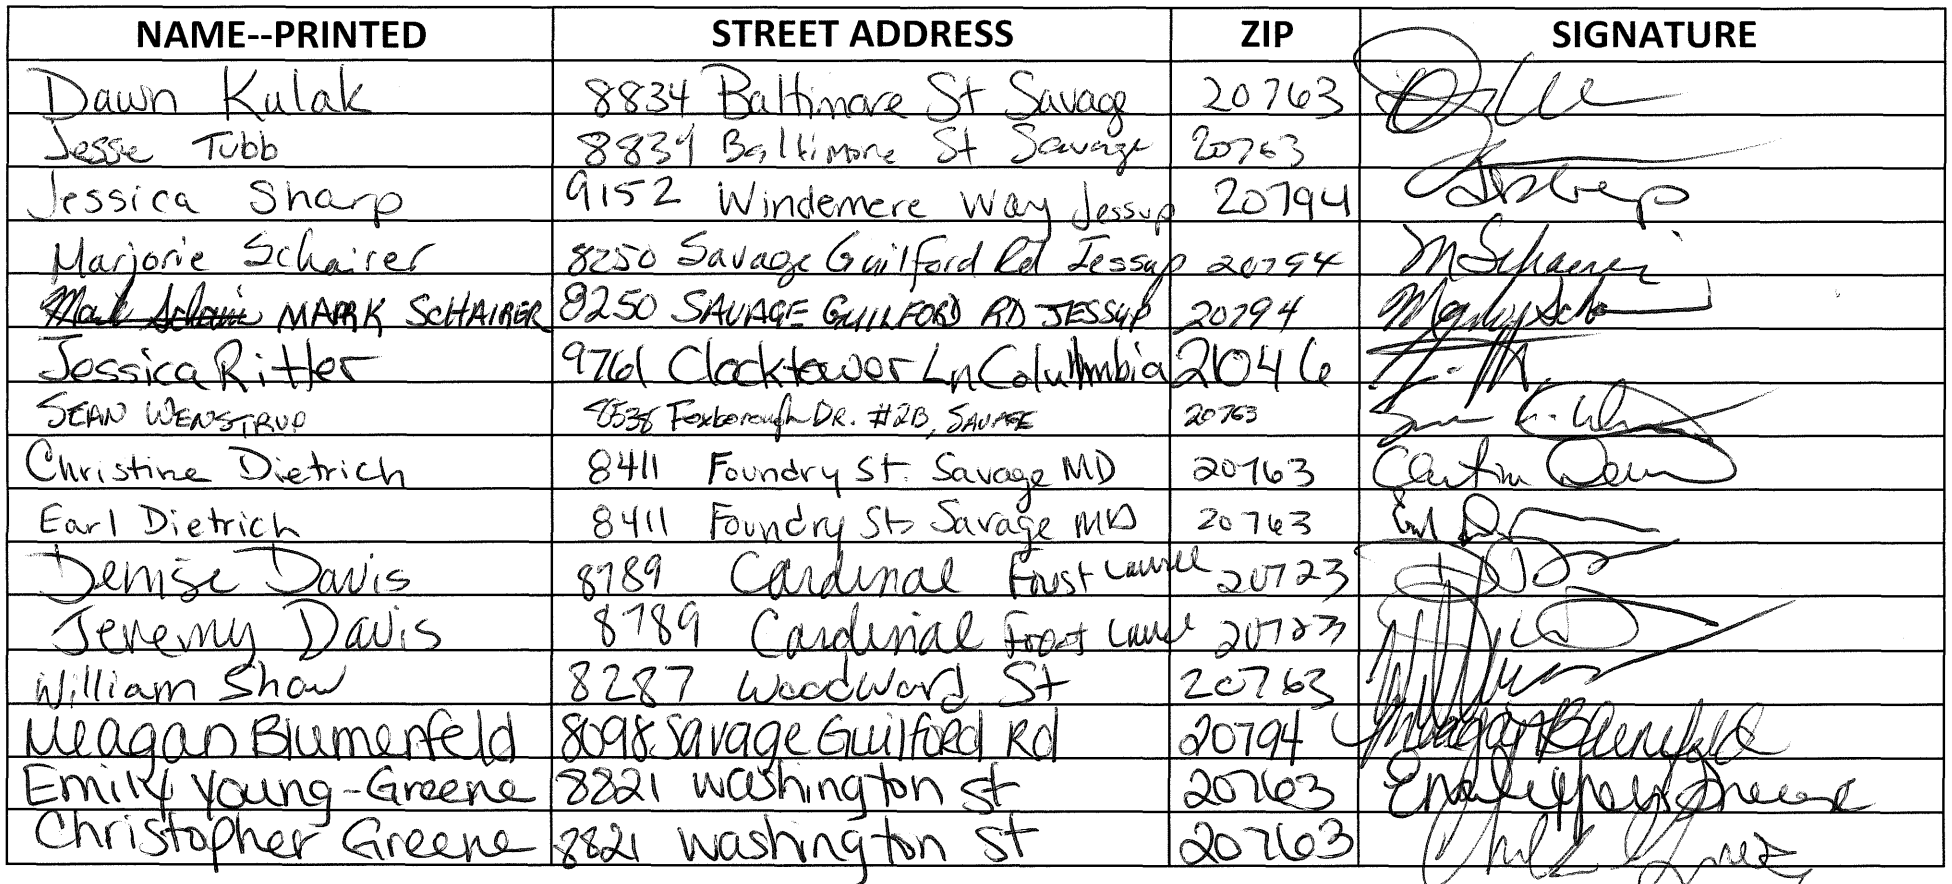 NAME--PRINTED STREET ADDRESS ZIP SIGNATURE
Dawn Kulak 8834 Baltimore St Savage 20763
Jesse Tubb 8834 Baltimore St Savage 20763
Jessica Sharp 9152 Windemere Way Jessup 20794
Marjorie Schairer 8250 Savage Guilford Rd Jessup 20794 M Schairer
MARK SCHAIRER 8250 SAVAGE GUILFORD RD JESSUP 20794
Jessica Ritter 9761 Clocktower Ln Columbia 21046
SEAN WENSTRUP 8538 Foxborough DR. #2B, SAVAGE 20763
Christine Dietrich 8411 Foundry St. Savage MD 20763
Earl Dietrich 8411 Foundry St Savage MD 20763
Denise Davis 8789 Cardinal Laurel 20723
Jeremy Davis 8789 Cardinal Laurel 20723
William Shaw 8287 Woodward St 20763
Meagan Blumenfeld 8098 Savage Guilford Rd 20794 Meagan Blumenfeld
Emily Young-Greene 8821 Washington St 20763
Christopher Greene 8821 Washington St 20763